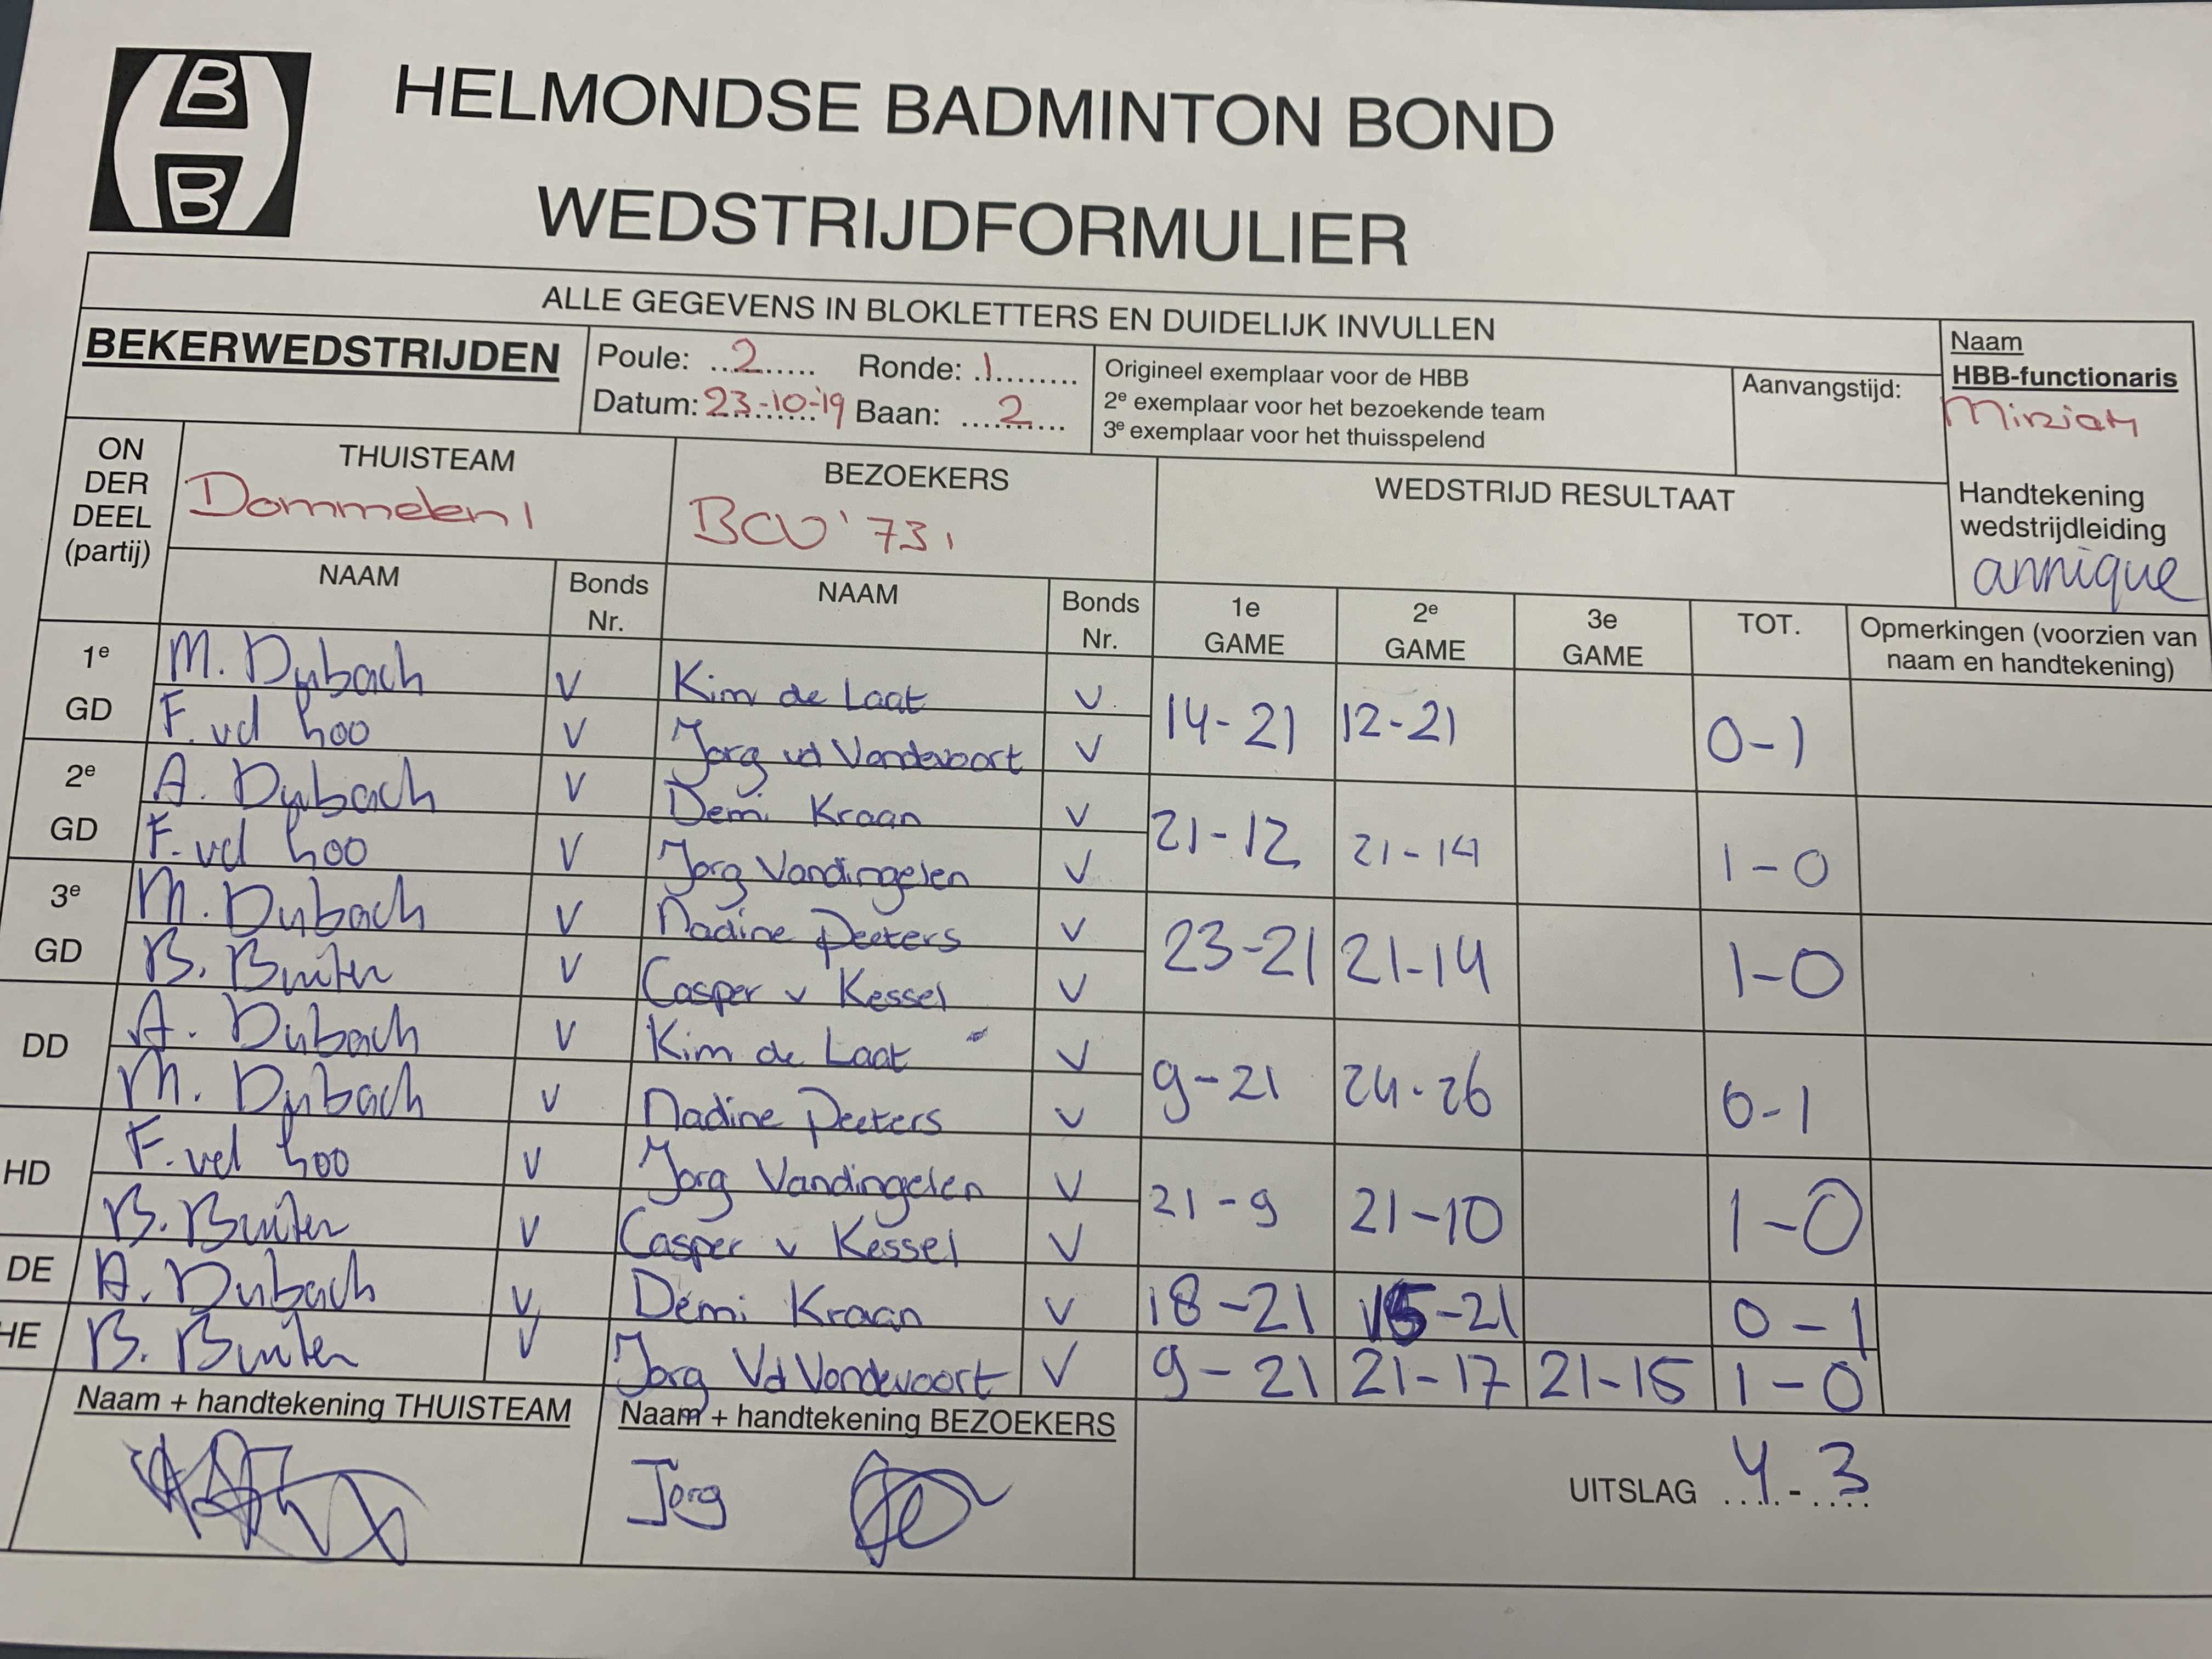 B
B
HELMONDSE BADMINTON BOND
WEDSTRIJDFORMULIER
ALLE GEGEVENS IN BLOKLETTERS EN DUIDELIJK INVULLEN
BEKERWEDSTRIJDEN
Poule: ..2..... Ronde: .1........
Datum: 23-10-'19 Baan: ....2.....
Origineel exemplaar voor de HBB
2e exemplaar voor het bezoekende team
3e exemplaar voor het thuisspelend
Aanvangstijd:
Naam
HBB-functionaris
Miriam
Handtekening
wedstrijdleiding
annique
ON
DER
DEEL
(partij)
THUISTEAM
Dommelen 1
BEZOEKERS
BCV '73 1
WEDSTRIJD RESULTAAT
NAAM Bonds Nr. NAAM Bonds Nr. 1e GAME 2e GAME 3e GAME TOT. Opmerkingen (voorzien van
naam en handtekening)
1e M. Dubach V Kim de Laat V
GD F. vd hoo V Jorg vd Vondevoort V 14-21 12-21 0-1
2e A. Dubach V Demi Kraan V
GD F. vd hoo V Jorg Vandingelen V 21-12 21-14 1-0
3e M. Dubach V Nadine Peeters V
GD B. Buiter V Casper v Kessel V 23-21 21-14 1-0
DD A. Dubach V Kim de Laat V
M. Dubach V Nadine Peeters V 9-21 24-26 0-1
HD F. vd hoo V Jorg Vandingelen V
B. Buiter V Casper v Kessel V 21-9 21-10 1-0
DE A. Dubach V Demi Kraan V 18-21 15-21 0-1
HE B. Buiter V Jorg Vd Vondevoort V 9-21 21-17 21-15 1-0
Naam + handtekening THUISTEAM
Naam + handtekening BEZOEKERS
Jorg
UITSLAG 4-3